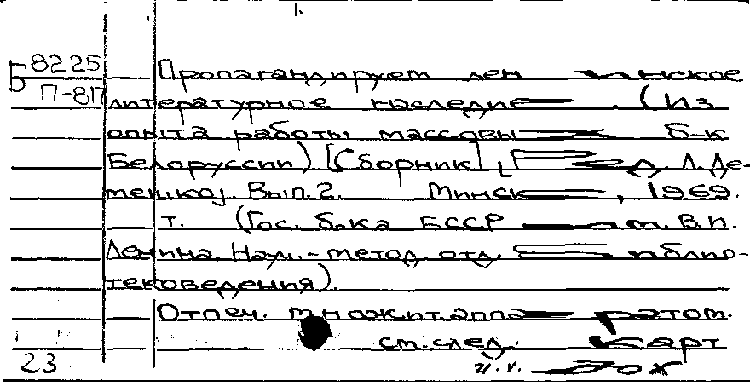 Б 8225
П-81
Пропагандируем ленинское
литературное наследие. (Из
опыта работы массовых б-к
Белоруссии) [Сборник].
Л. Де-
мешко]. Вып. 2. Минск, 1969.
т. (Гос. б-ка БССР им. В.И.
Ленина. Науч.-метод. отд. библио-
тековедения).
Отпеч. множит. аппаратом.
см. след. карт
23